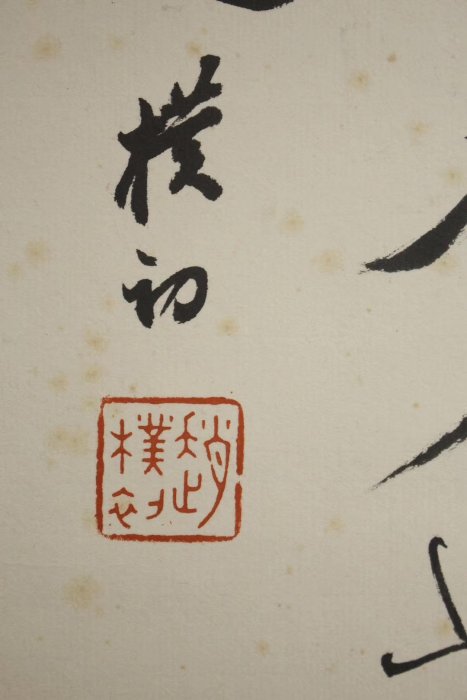 樸初
趙樸初